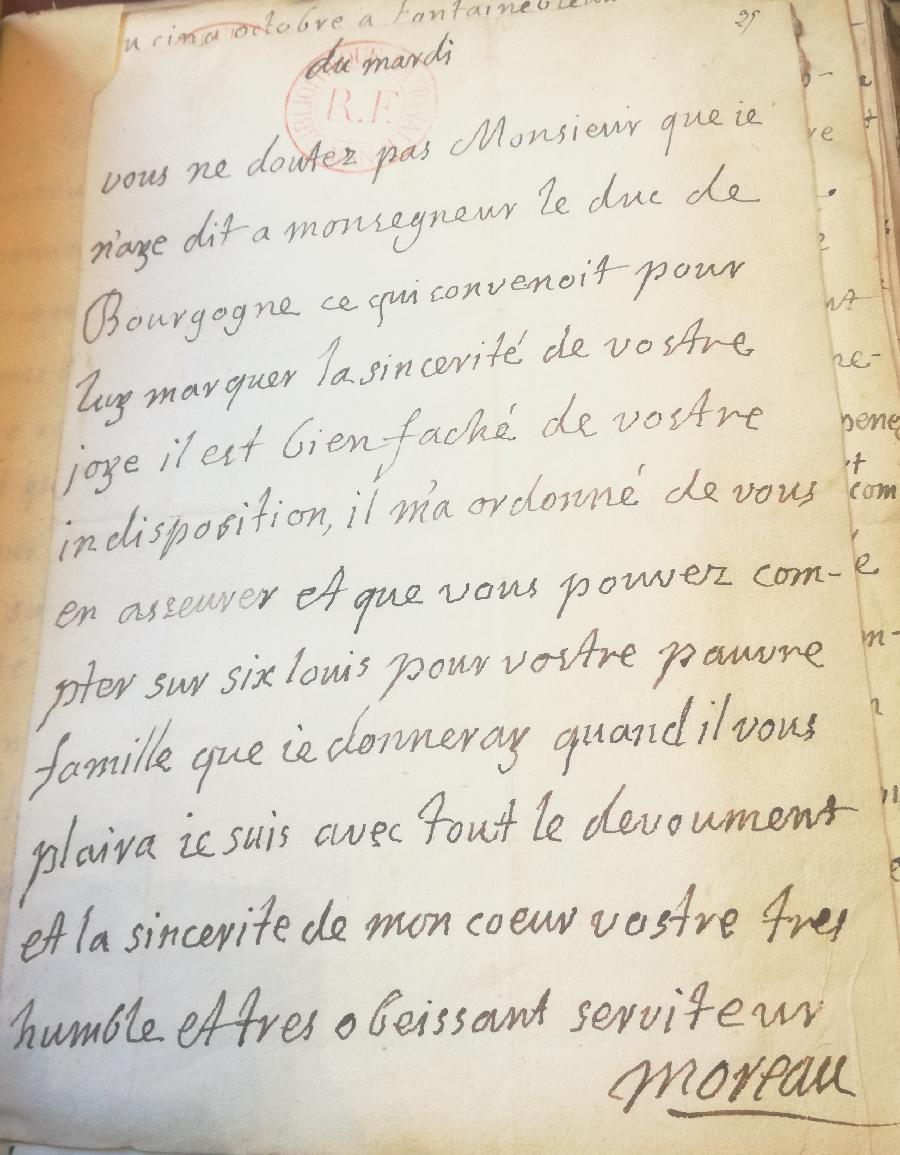 cinq octobre a fontainebleau
25
du mardi
R.F
vous ne doutez pas Monsieur que ie
n'aye dit a monsegneur le duc de
Bourgogne ce qui convenoit pour
luy marquer la sincerité de vostre
joye il est bien faché de vostre
indisposition, il m'a ordonné de vous
en asseurer et que vous pouvez com-
pter sur six louis pour vostre pauvre
famille que ie donneray quand il vous
plaira ie suis avec tout le devoument
et la sincerite de mon coeur vostre tres
humble et tres obeissant serviteur
moreau